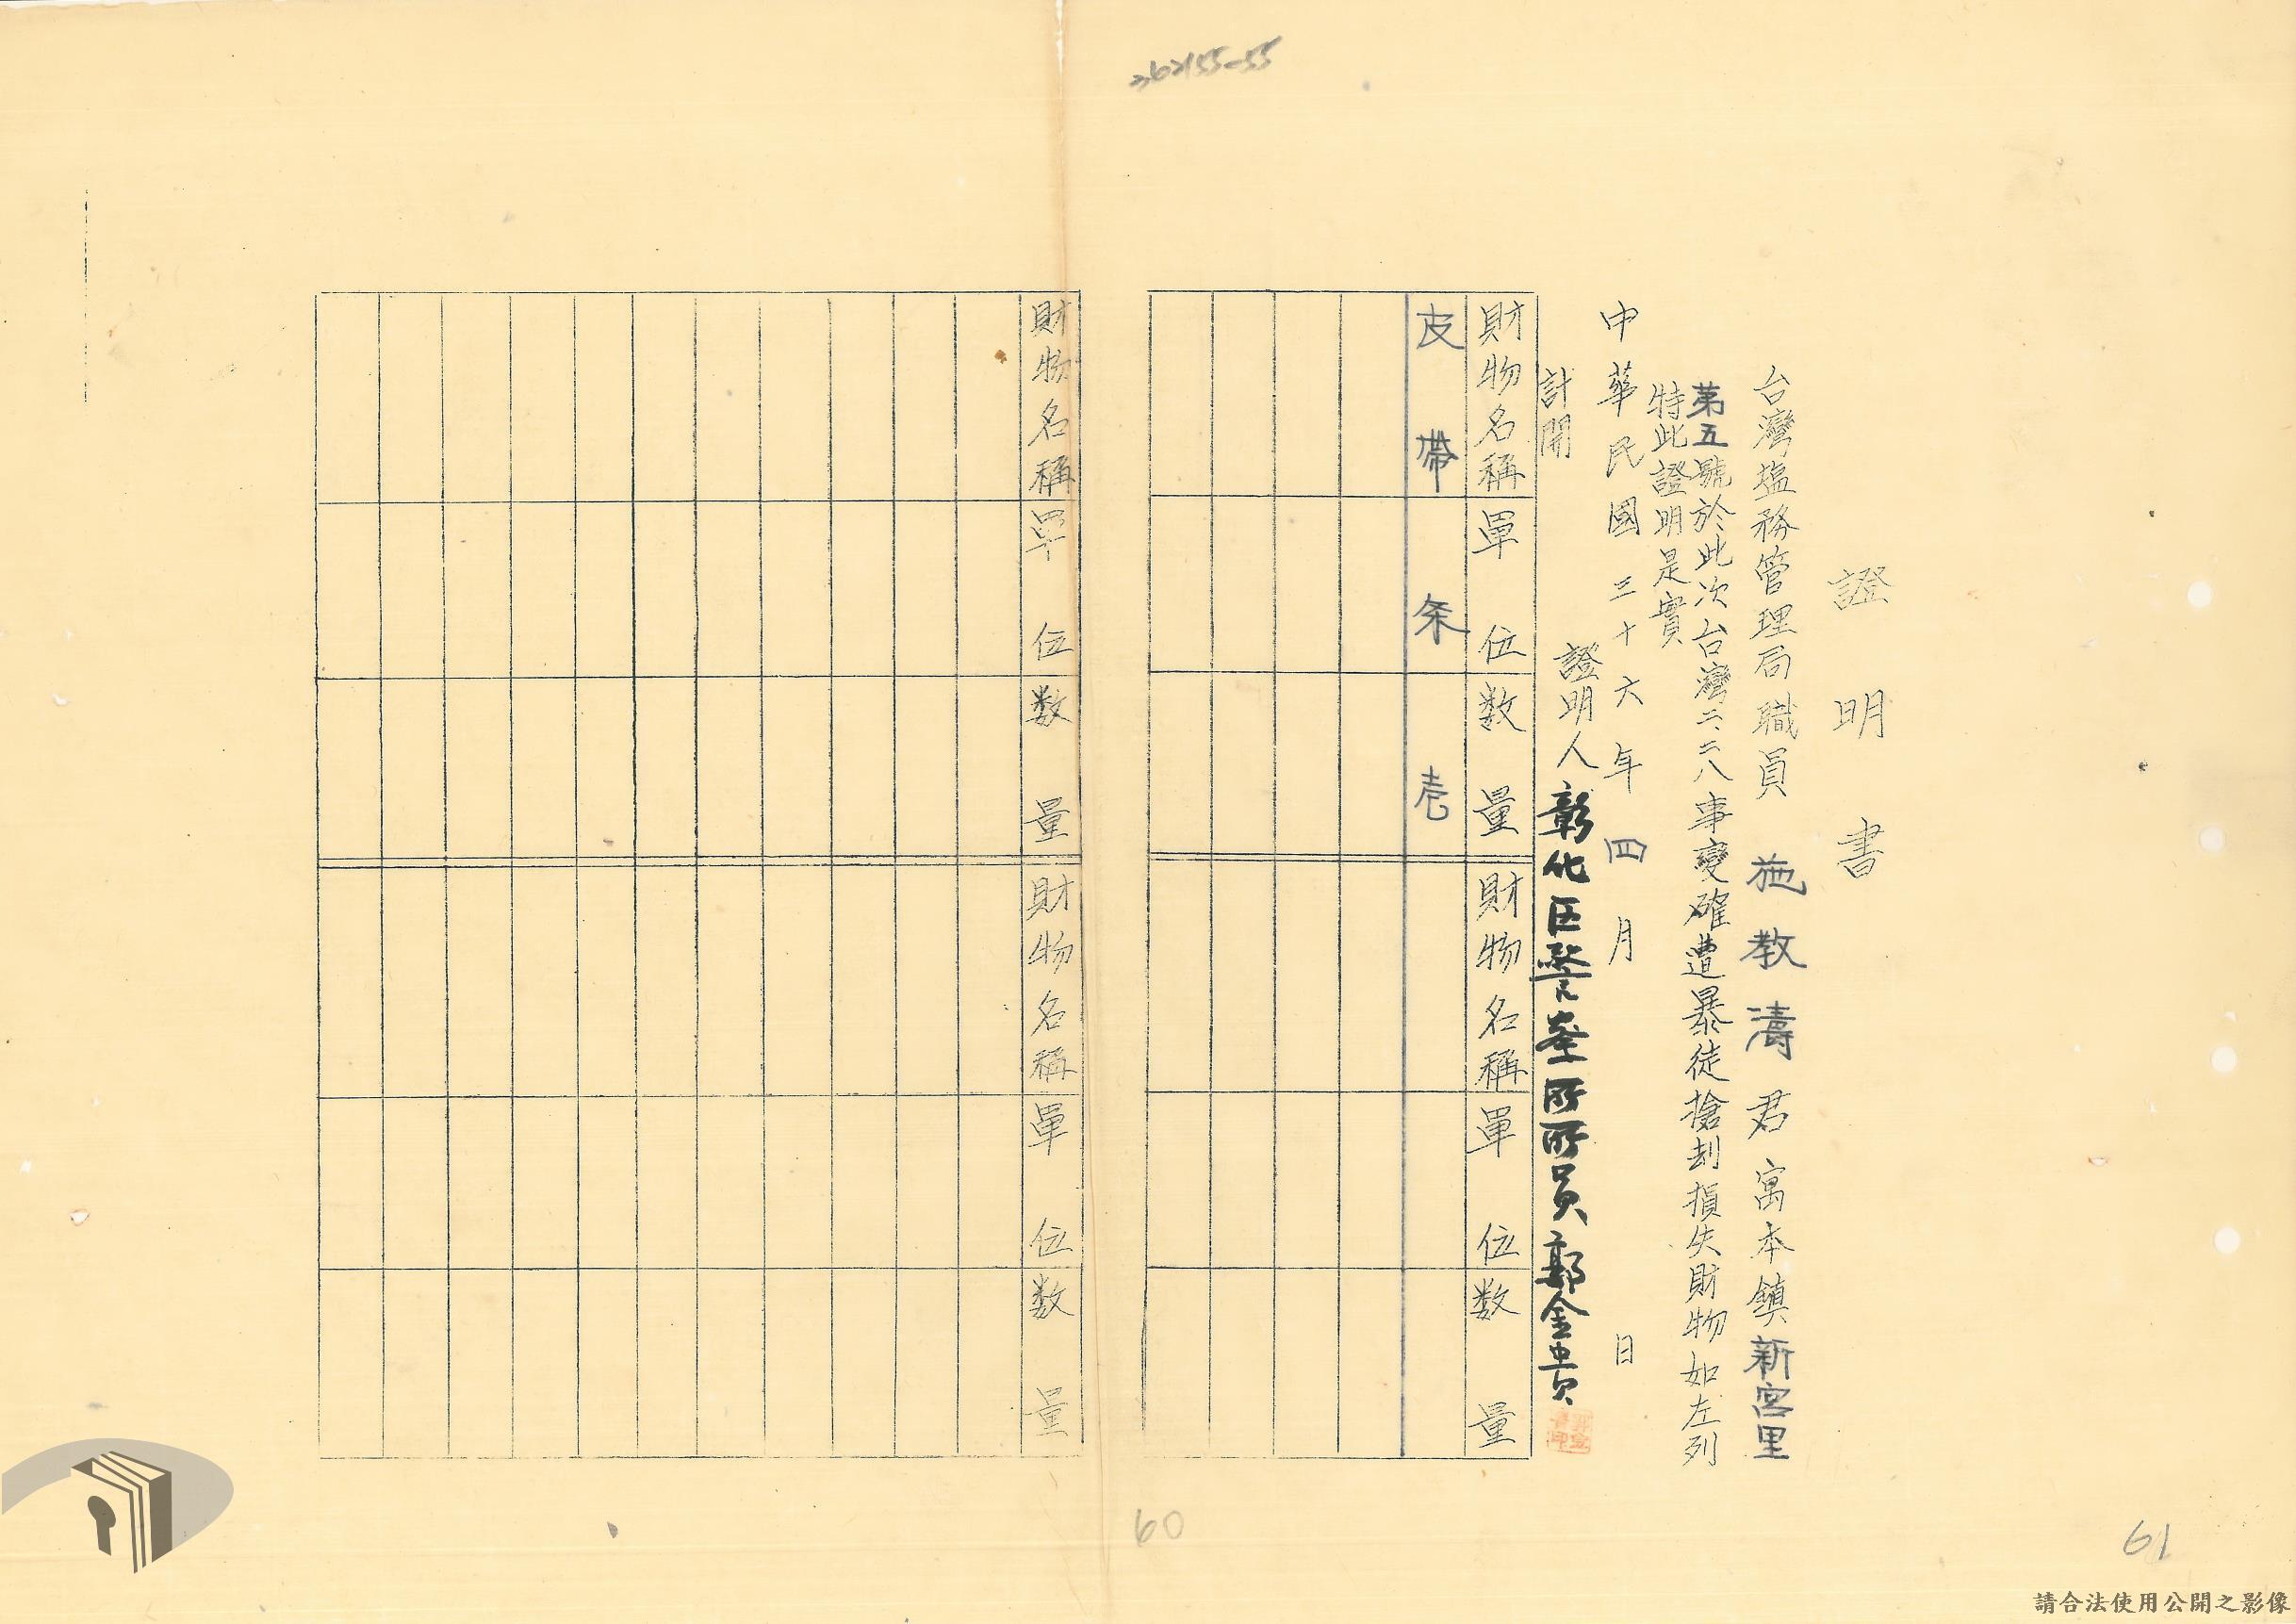 262155-55
證明書
台灣塩務管理局職員 施教濤 君寓本鎮新宮里
第五號於此次台灣二、二八事變確遭暴徒搶刦損失財物如左列
特此證明是實
中華民國三十六年四月 日
證明人 彰化區警 所所員 郭金
計開
財物名稱 單位 数量 財物名稱 單位 数量
皮帶 条 壱
財物名稱 單位 数量 財物名稱 單位 数量
60
61
請合法使用公開之影像